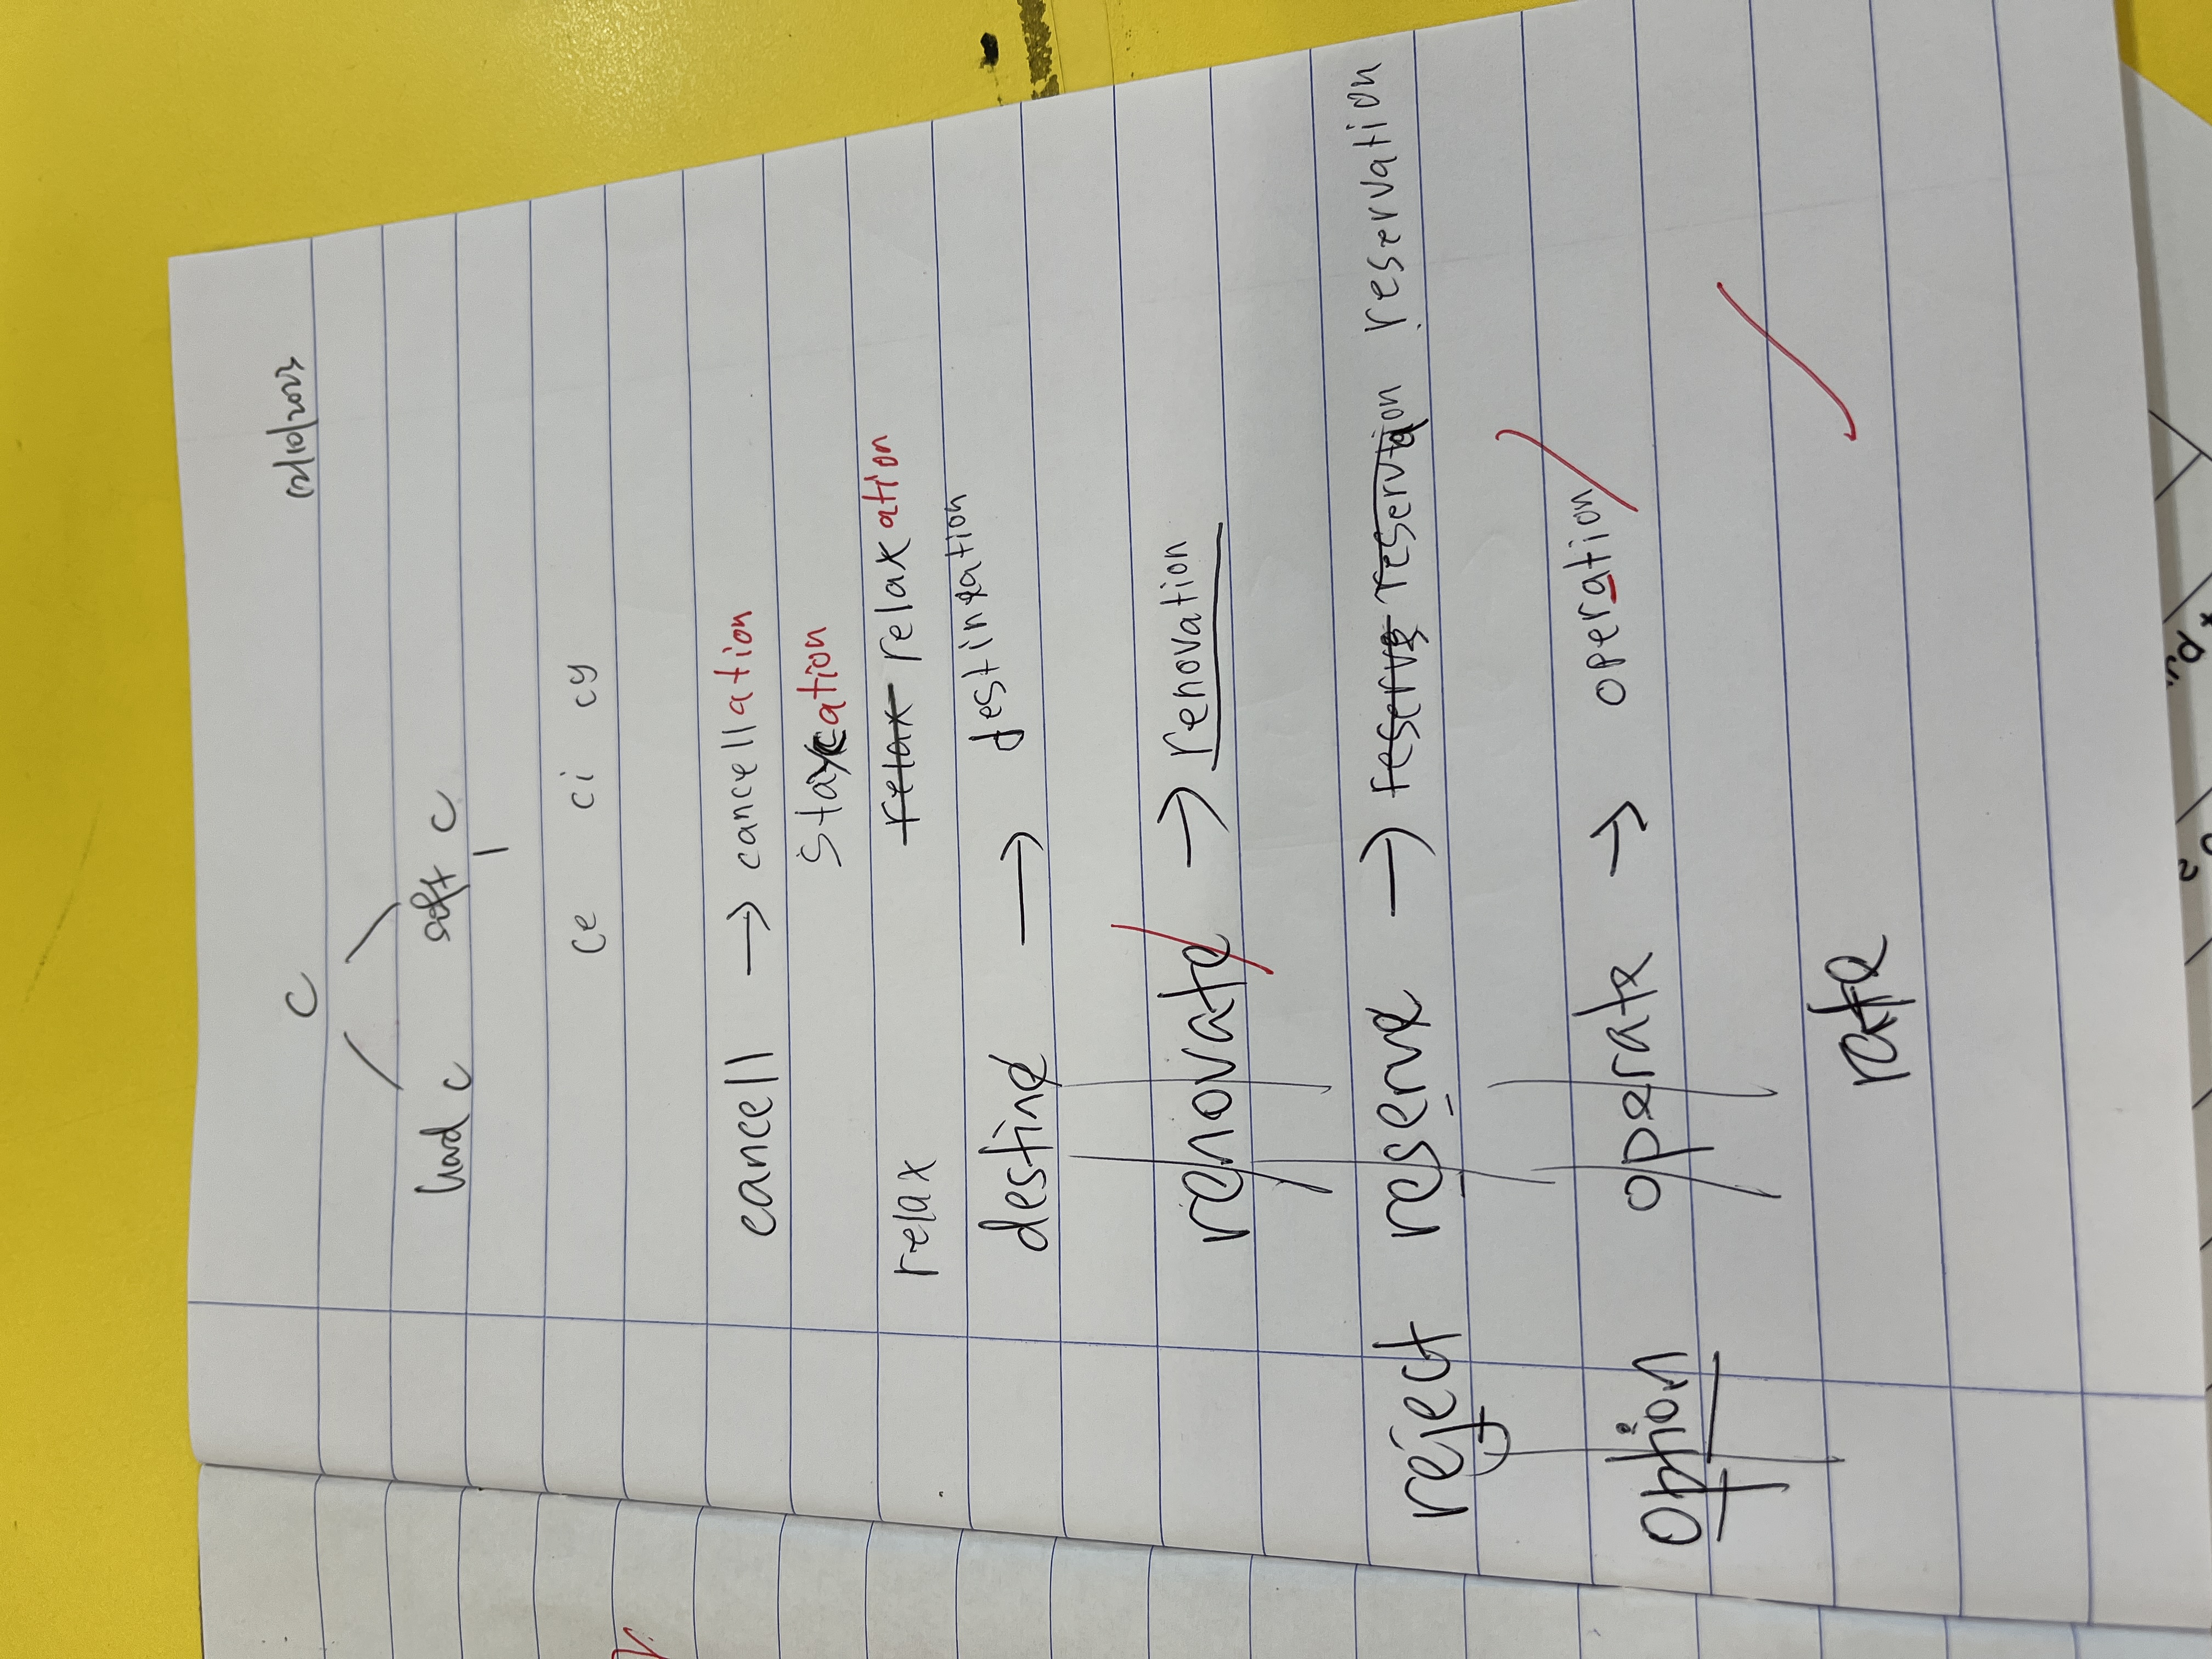 C
hard c soft c
ce ci cy
cancell → cancellation
staycation
relax relax relaxation
destine → destination
renovate → renovation
reject reserve → reserve reservtion reservation
option operate → operation
rate